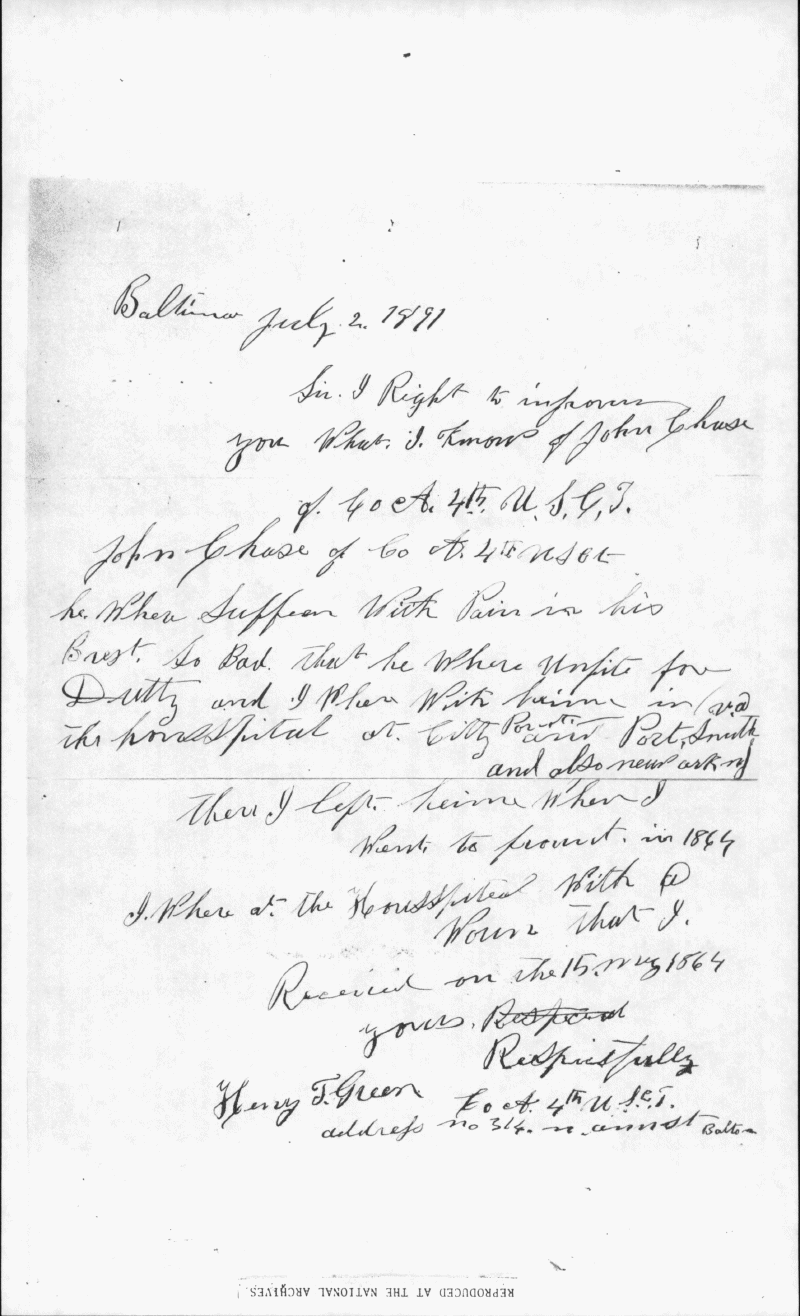 Baltimor July 2. 1891
Sir. I Right to inform
you What. I. Know of John Chase
of. Co A. 4th. U. S. C. T.
John Chase of Co A. 4th U S Ct
he. Where Suffern With Pain in his
Brest. So Bad. that he Where Unfite for
Dutty and I Where With heime in (va
the housspital at. Citty Point and Port, Smith
and also
then I left. heime When I
Went. to frount. in 1864
I. Where at. the Housspiteal With a
Woun that I.
Received on the 15. May 1864
yours. Respeced
Respiestfully
Henry T. Green Co A. 4th U. S. C. T.
address no 314. n. st Balto
REPRODUCED AT THE NATIONAL ARCHIVES.